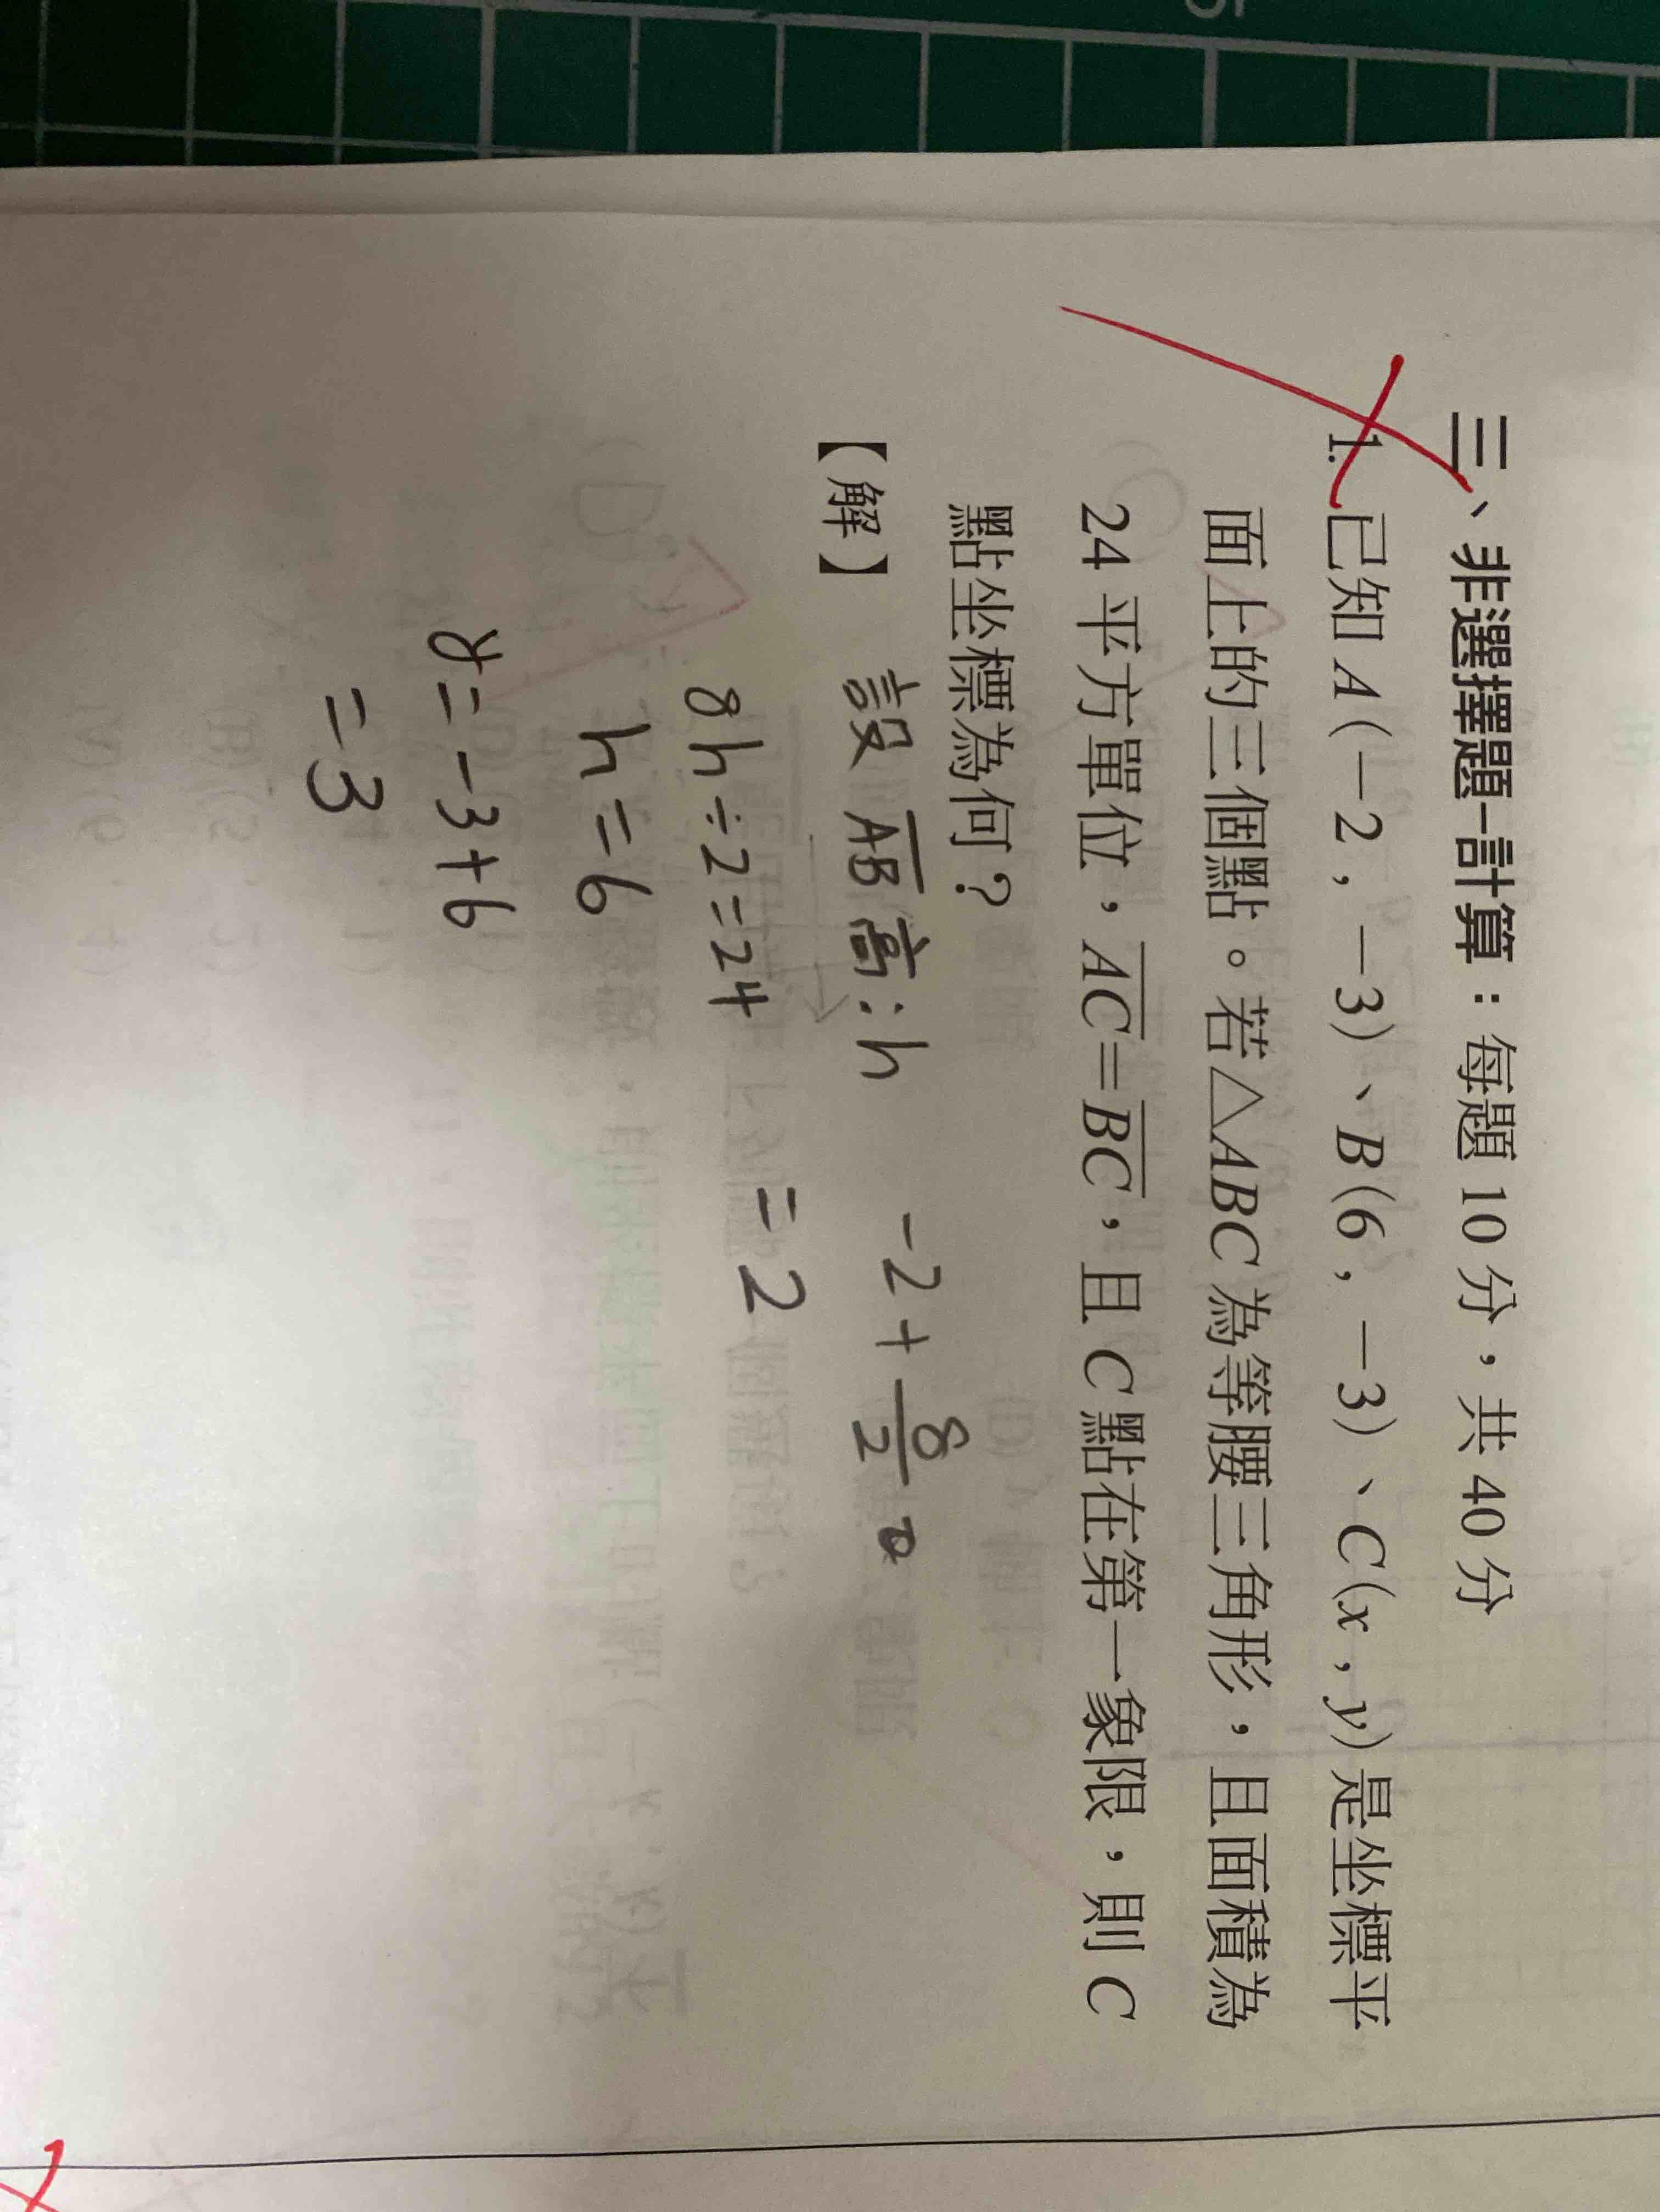 三、非選擇題-計算：每題 10 分，共 40 分
1. 已知 A(−2, −3)、B(6, −3)、C(x, y) 是坐標平
面上的三個點。若△ABC 為等腰三角形，且面積為
24 平方單位，\overline{AC}=\overline{BC}，且 C 點在第一象限，則 C
點坐標為何？
【解】 設 \overline{AB} 高：h
8h÷2=24
h=6
y=-3+6
=3
-2+\frac{8}{2}
=2